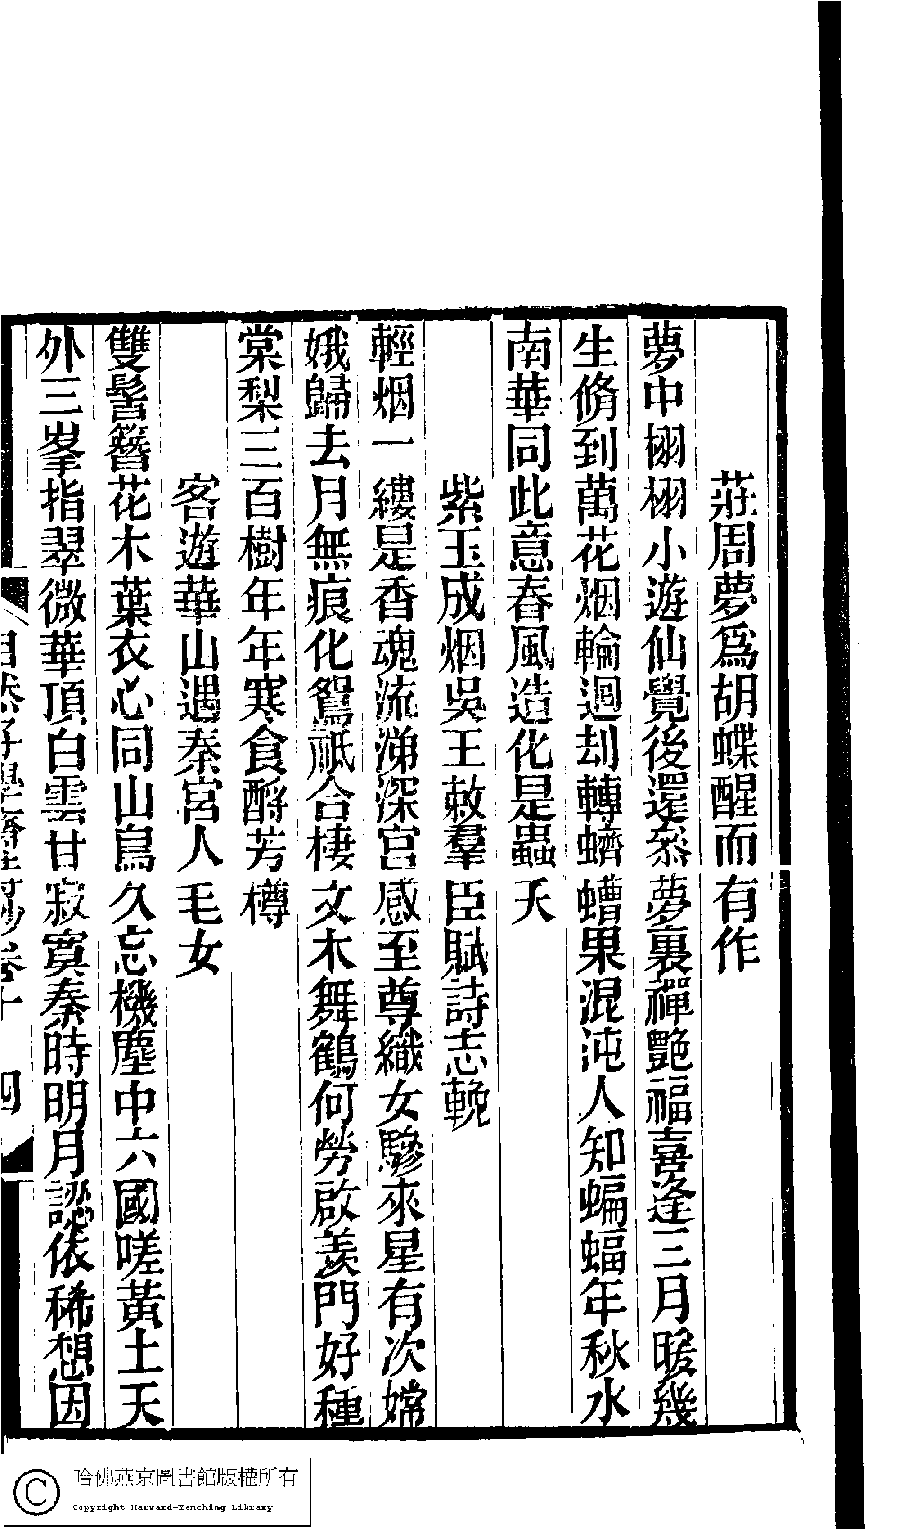 莊周夢爲胡蝶醒而有作
夢中栩栩小遊仙覺後還叅夢裏禪艷福喜逢三月暖幾
生脩到萬花烟輪迴刦轉蠐螬果混沌人知蝙蝠年秋水
南華同此意春風造化是蟲天
紫玉成烟吳王敕羣臣賦詩志輓
輕烟一縷是香魂流涕深宮感至尊織女驂來星有次嫦
娥歸去月無痕化鴛祗合棲文木舞鶴何勞啟羨門好種
棠梨三百樹年年寒食酹芳樽
客遊華山遇秦宮人毛女
雙髻簪花木葉衣心同山鳥久忘機塵中六國嗟黃土天
外三峯指翠微華頂白雲甘寂寞秦時明月認依稀想因
卷十 四
哈佛燕京圖書館版權所有
Copyright Harvard-Yenching Library